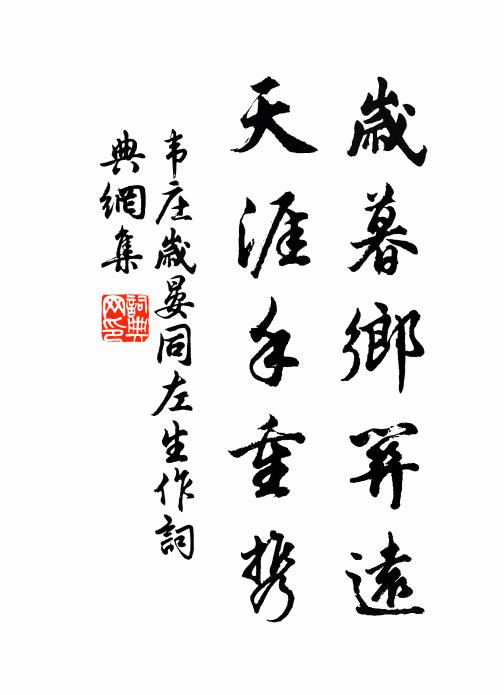 歲暮鄉關遠
天涯手重攜
韦庄歲晏同左生作詞
典網集
詞典网印